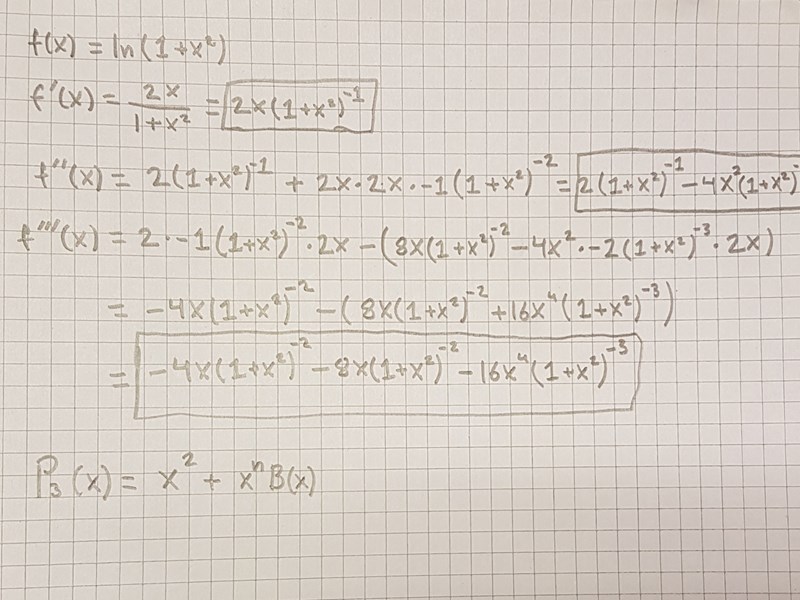 f(x) = ln(1+x²)
f'(x) = 2x/(1+x²) = 2x(1+x²)⁻¹
f''(x) = 2(1+x²)⁻¹ + 2x·2x·-1(1+x²)⁻² = 2(1+x²)⁻¹ - 4x²(1+x²)⁻
f'''(x) = 2·-1(1+x²)⁻²·2x - (8x(1+x²)⁻² - 4x²·-2(1+x²)⁻³·2x)
= -4x(1+x²)⁻² - (8x(1+x²)⁻² + 16x⁴(1+x²)⁻³)
= -4x(1+x²)⁻² - 8x(1+x²)⁻² - 16x⁴(1+x²)⁻³
P₃(x) = x² + xⁿB(x)